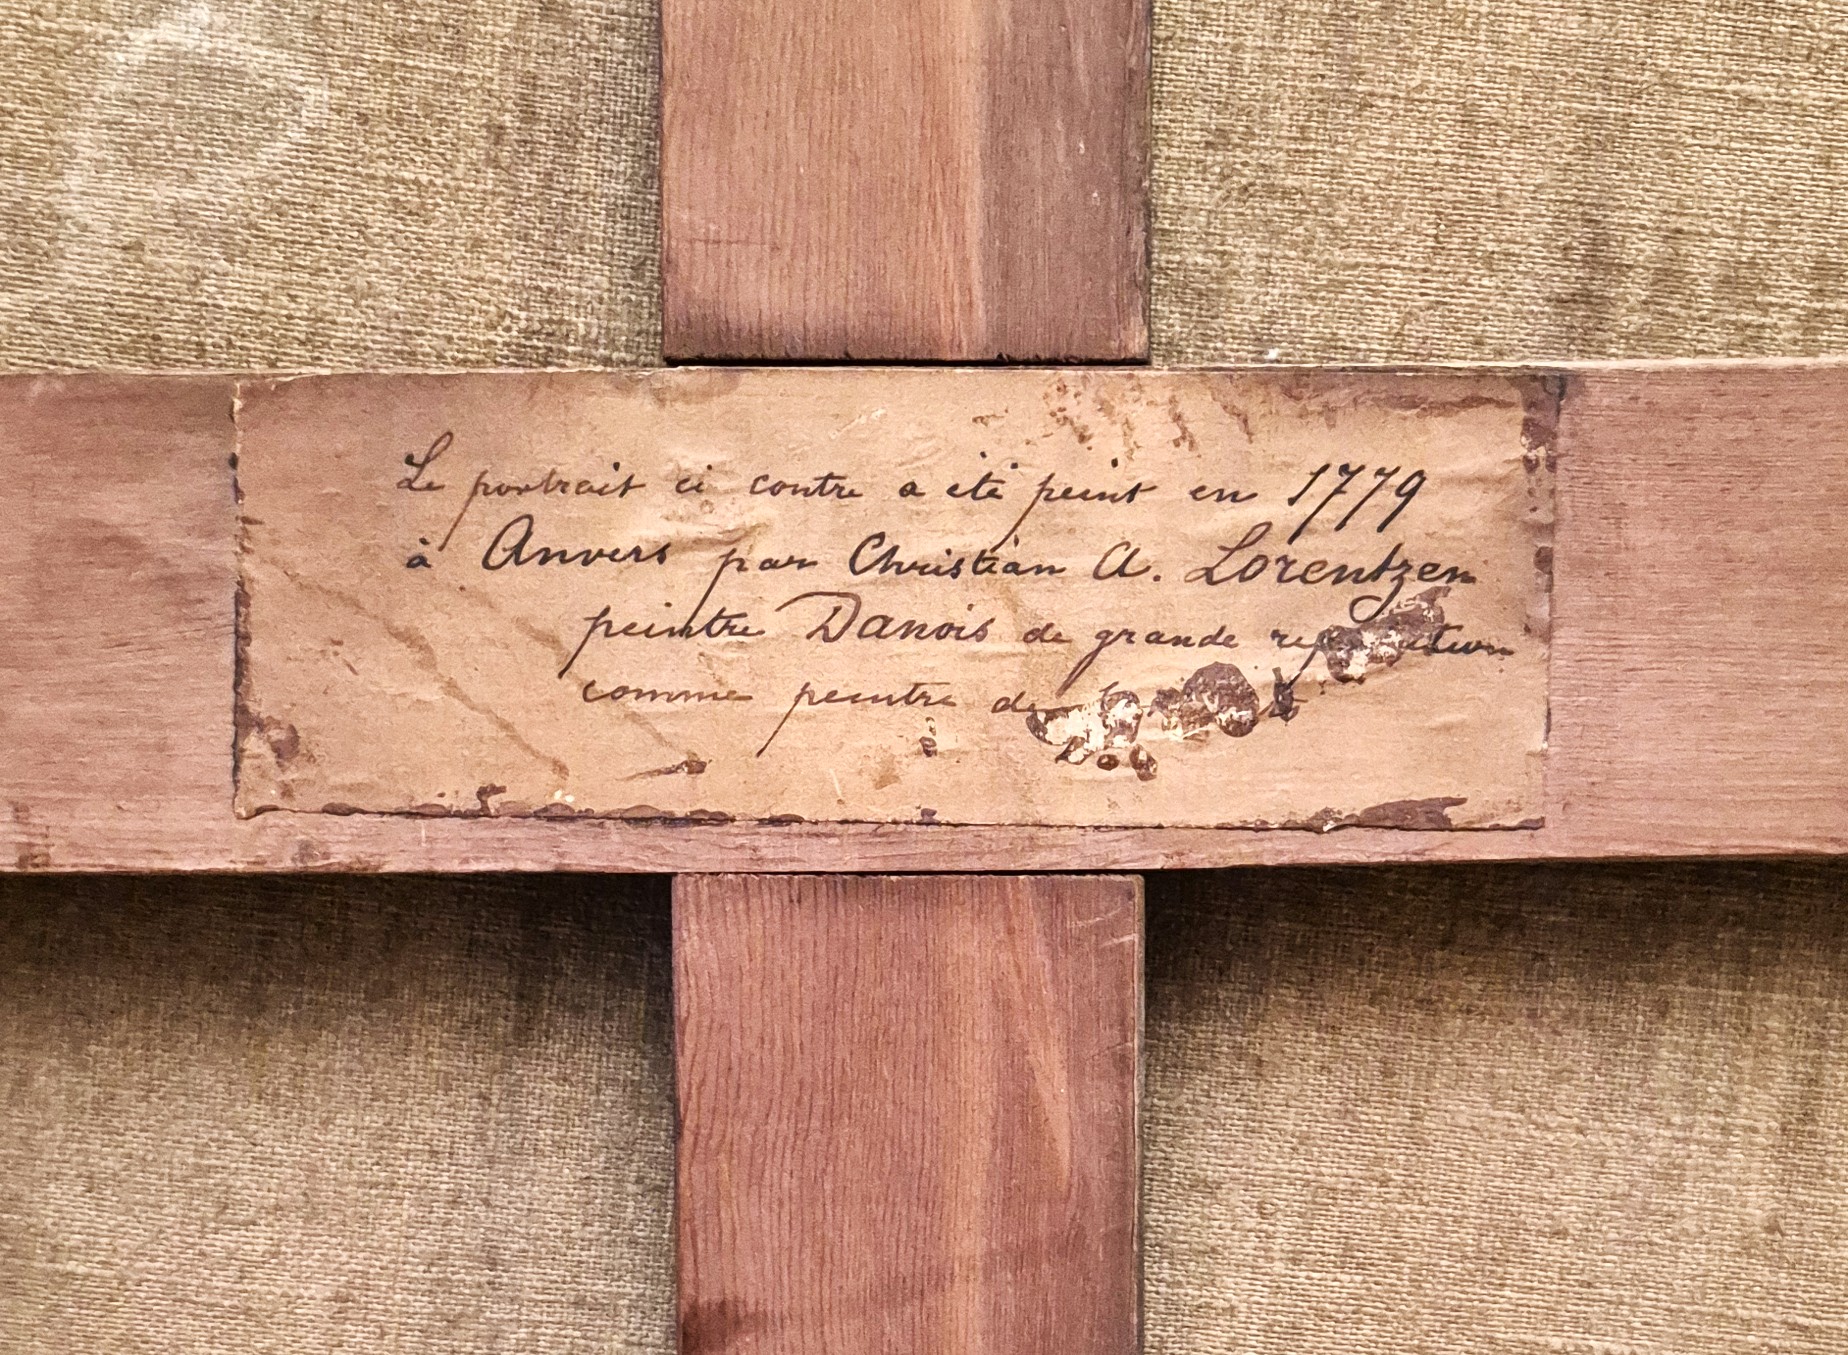 Le portrait ci contre a été peint en 1779
à Anvers par Christian A. Lorentzen
peintre Danois de grande reputation
comme peintre de